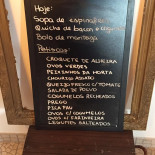 Hoje:
Sopa de espinafres
Quiche de bacon e
Bolo de manteiga
Petiscos:
CROQUETE DE ALHEIRA
OVOS VERDES
PEIXINHOS DA HORTA
CHOURIÇO ASSADO
QUEIJO FRESCO C/ TOMATE
SALADA DE POLVO
COGUMELOS RECHEADOS
PREGO
PICA PAU
OVOS C/ COGUMELOS
OVOS C/ FARINHEIRA
LEGUMES SALTEADOS